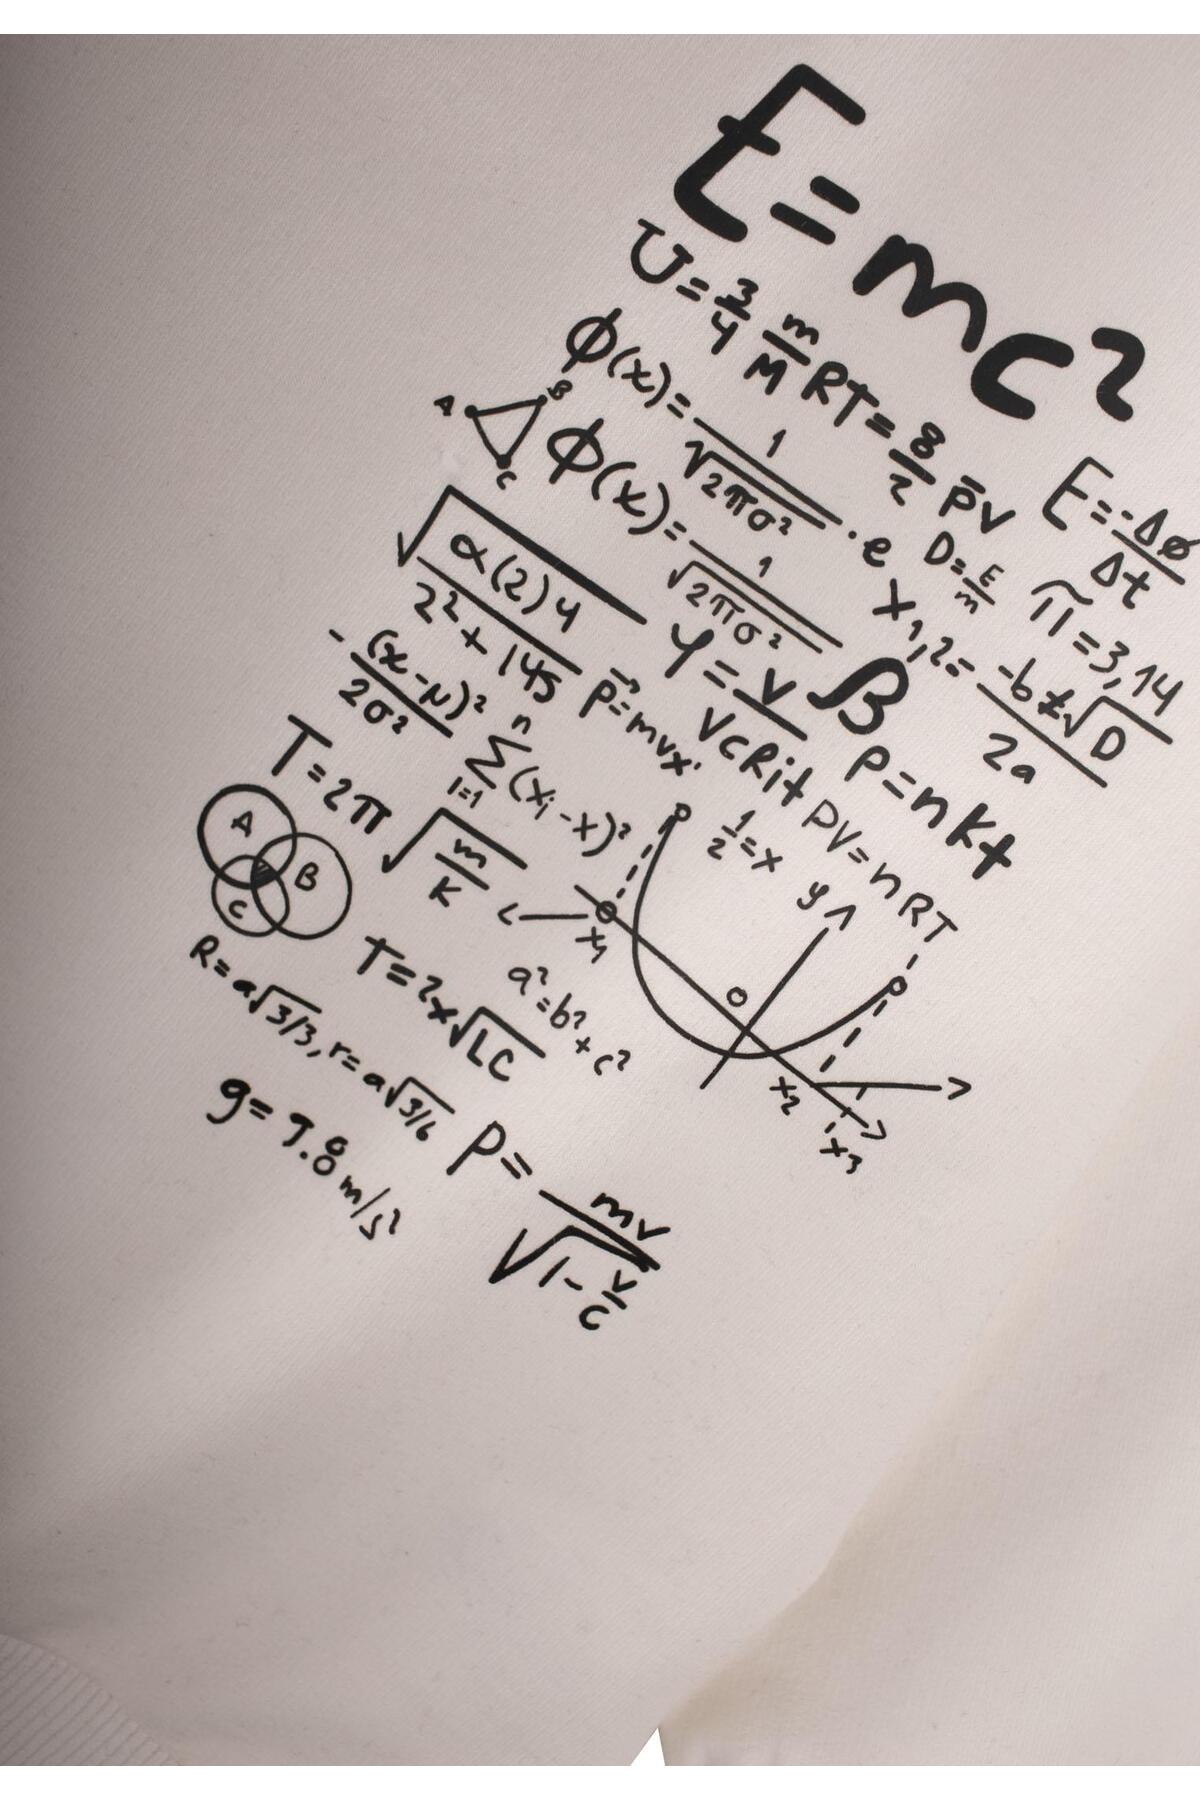 E=mc²
U=3/4 m/M RT=8/2 p̄V
ϕ(x)=1/√2πσ² ·e
E=-Δø/Δt
A B C
ϕ(x)=1/√2πσ²
D=E/m
π=3,14
√α(2)4/2²+145
X1,2=-b±√D/2a
-(x-μ)²/2σ²
p⃗=mvx'
γ=v/VcRit
β
p=nkt
n Σ i=1 (xi-x)²
T=2π√m/K
1/2=x
PV=nRT
A B C
y
x1
0
x2
x3
T=2x√LC
a²=b²+c²
R=a√3/3, r=a√3/6
g=9.8m/s²
P=mv/√1-v/c